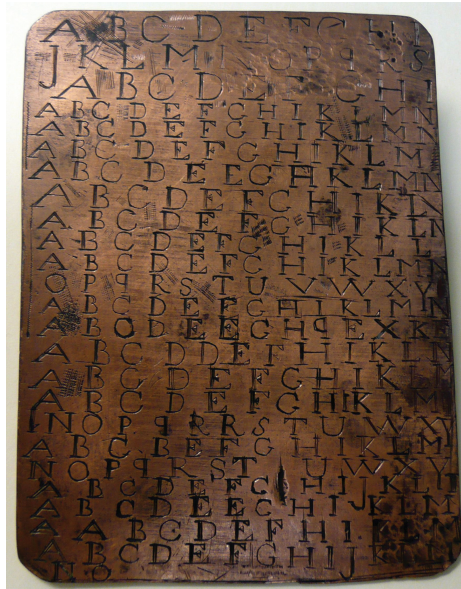 A B C D E F G H I
J K L M O P q R S
J A B C D E F G H I
A B C D E F G H I K L M N
A B C D E F G H I K L M N
A B C D E F G H I K L M N
A B C D E E G H K L M N
A B C D E F G H I K L N
A B C D E F G H I K L N
A B C D E F G H I K L L
A B C D E F G H I K L M N
O P q R S T U V W X Y
A B C D E F G H I K L M N
A B O D E E C H q E X K E
A B C D D E F H I K L N
A B C D E F G H I K L M
A B C D E F G H I K L M
N O P q R R S T U W X Y
A B C B E F G H I K L M
N O P q R S T U W X Y
A B C D E F G H I J K L
A B C D E E C H I J K L M
A A B C D E F H I K L M
A B C D E F G H I J K L
N O